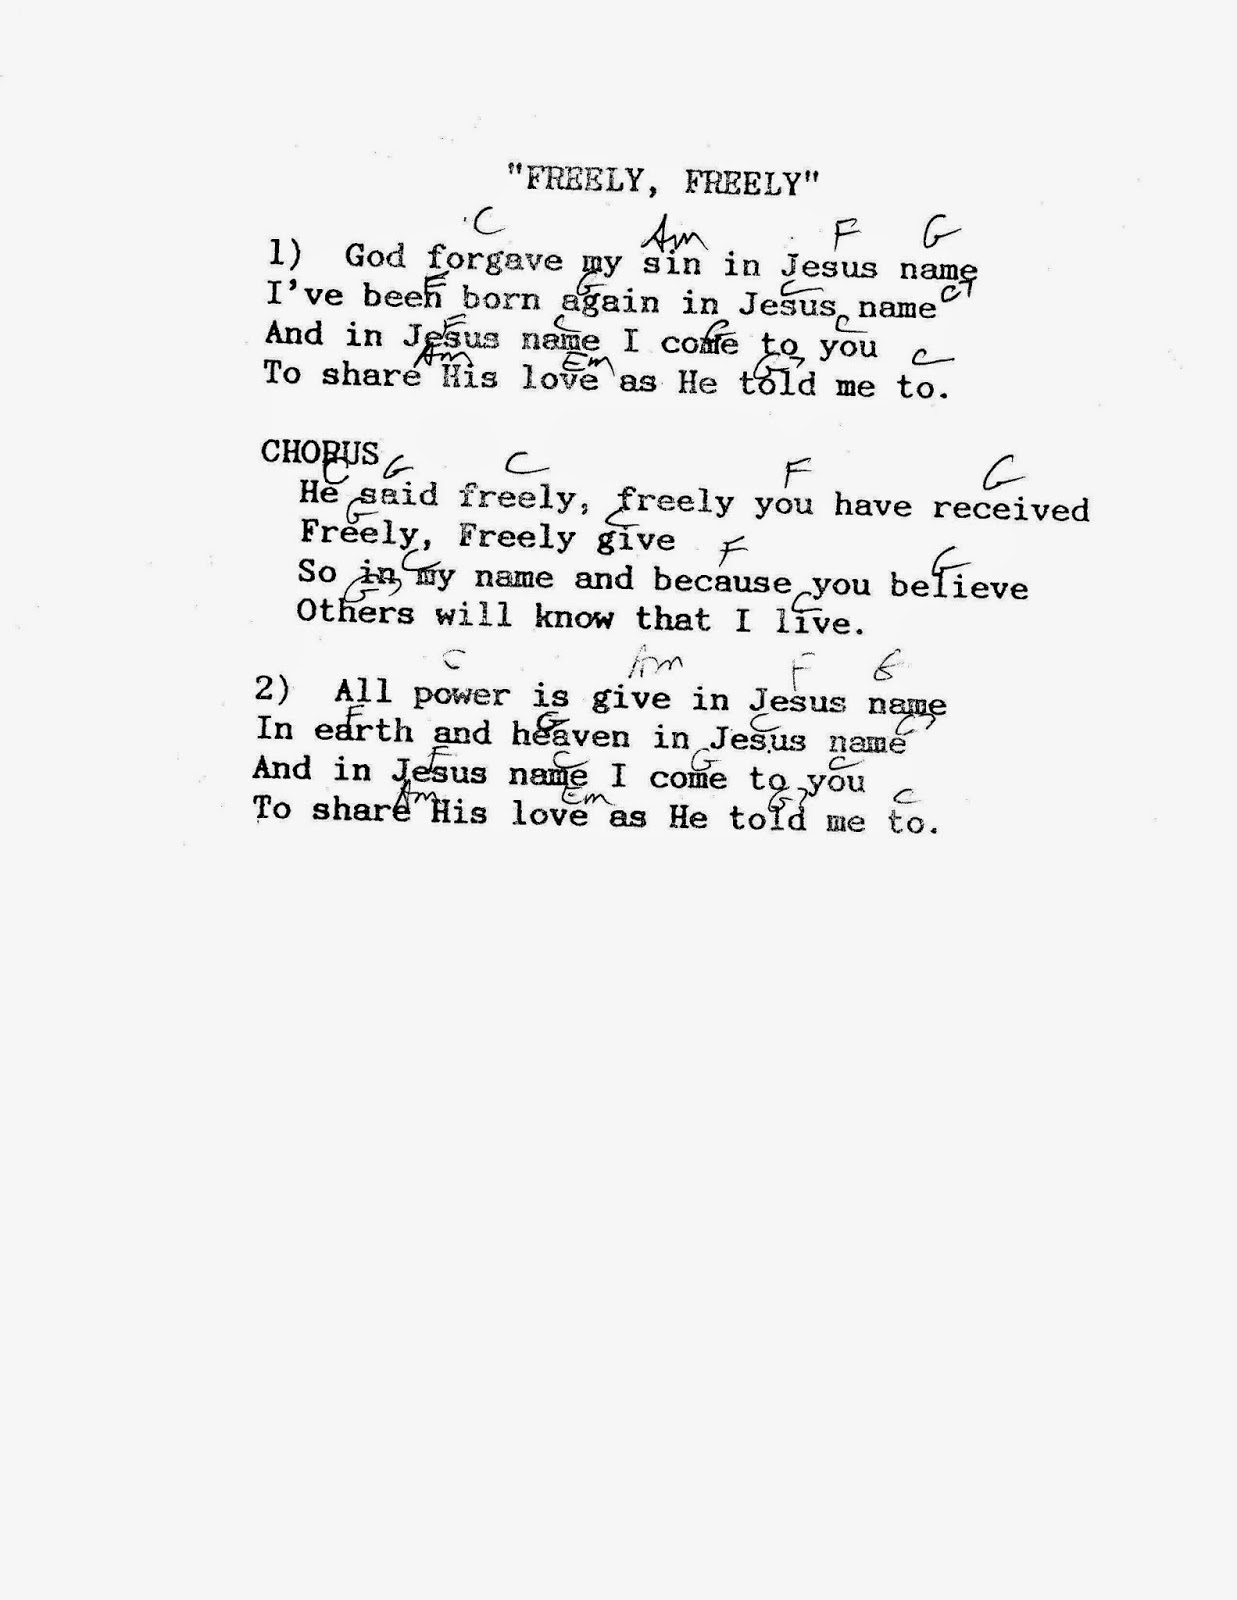 "FREELY, FREELY"
C Am F G
1) God forgave my sin in Jesus name
F G C C7
I've been born again in Jesus name
F C G C
And in Jesus name I come to you
Am Em G7 C
To share His love as He told me to.
CHORUS
C G C F G
He said freely, freely you have received
G C
Freely, Freely give
C F G
So in my name and because you believe
G7 C
Others will know that I live.
C Am F G
2) All power is give in Jesus name
F G C C7
In earth and heaven in Jesus name
F C G C
And in Jesus name I come to you
Am Em G7 C
To share His love as He told me to.